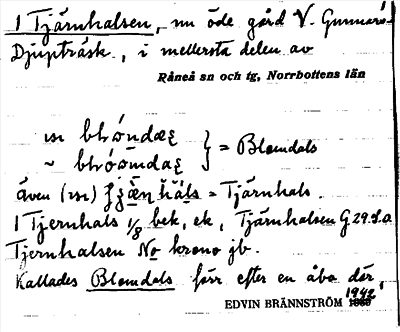 1 Tjärnhalsen, nu öde gård V. Gunnars-
Djupträsk, i mellersta delen av
Råneå sn och tg, Norrbottens län
= Blomdals
även (ın) = Tjärnhals.
1 Tjernhals 1/8 bek, ek, Tjärnhalsen G.29.S.a
Tjernhalsen No krono jb.
Kallades Blomdals förr efter en åbo där,
1942
EDVIN BRÄNNSTRÖM